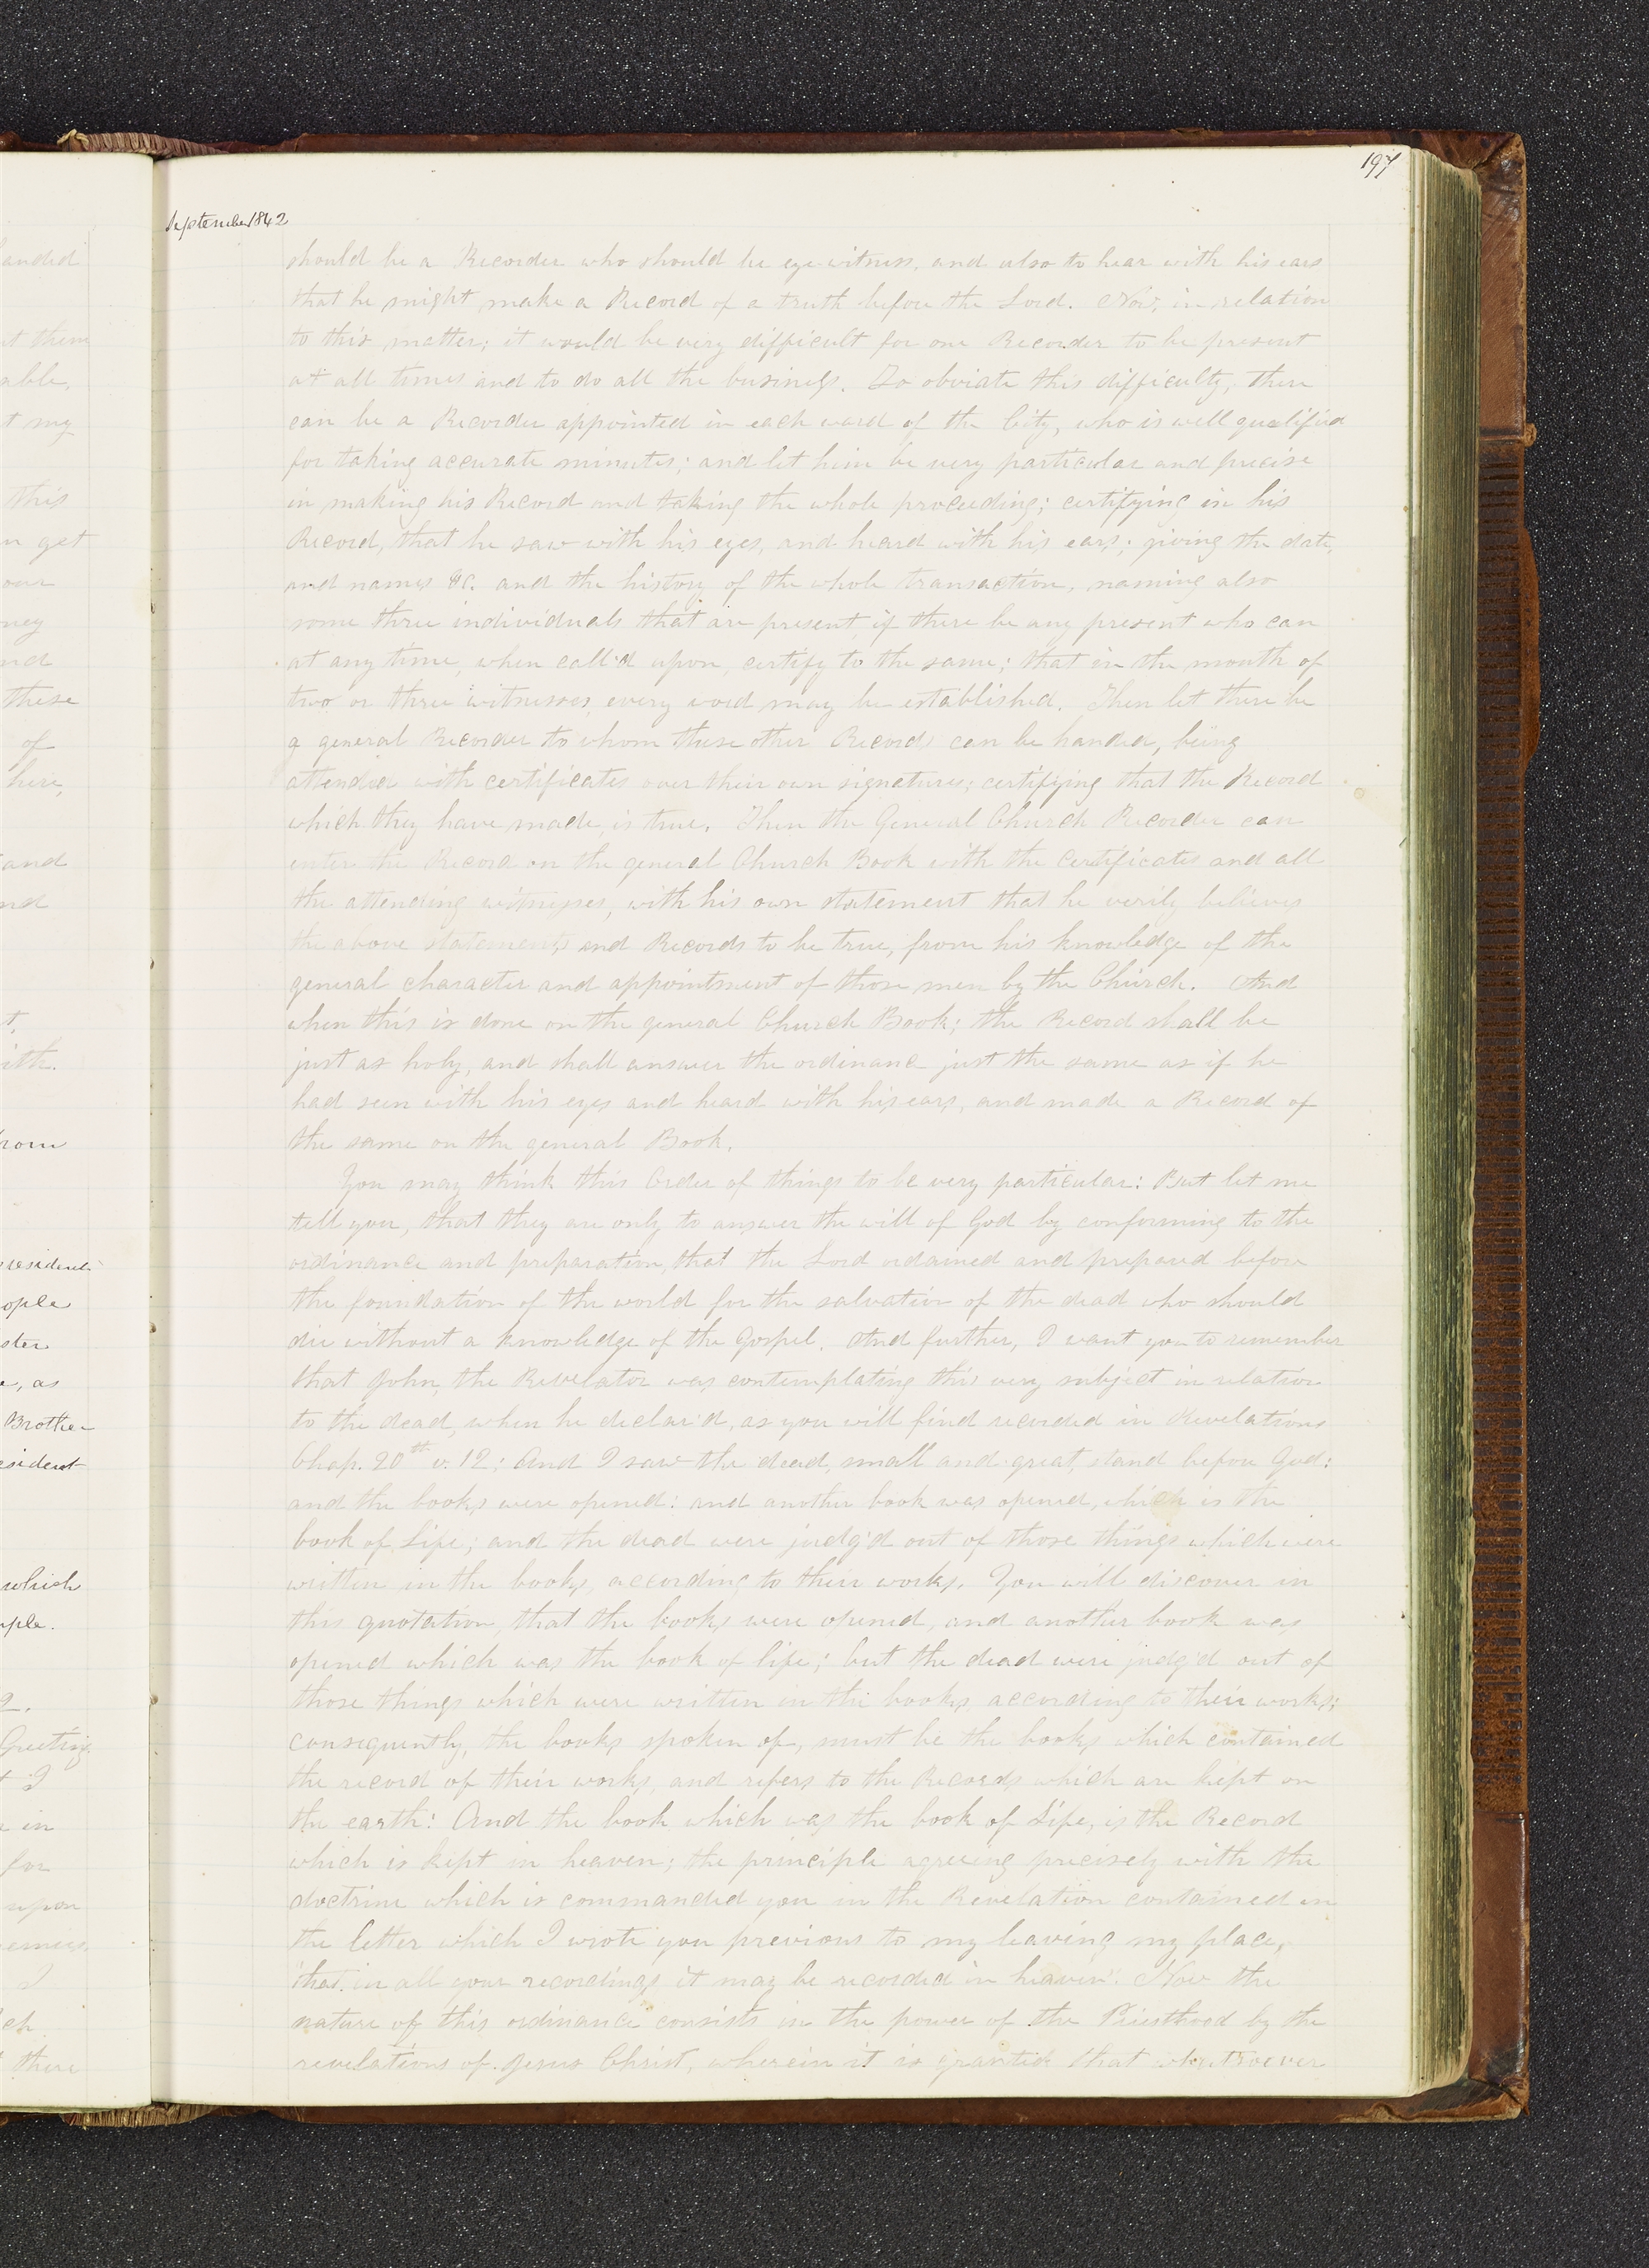 197
September 1842
should be a Recorder who should be eye-witness, and also to hear with his ears
that he might make a Record of a truth before the Lord. Now, in relation
to this matter; it would be very difficult for one Recorder to be present
at all times and to do all the business. To obviate this difficulty, there
can be a Recorder appointed in each ward of the City, who is well qualified
for taking accurate minutes; and let him be very particular and precise
in making his Record and taking the whole proceeding; certifying in his
Record, that he saw with his eyes, and heard with his ears; giving the date,
and names &c. and the history of the whole transaction, naming also
some three individuals that are present, if there be any present who can
at any time, when call'd upon, certify to the same; that in the mouth of
two or three witnesses every word may be established. Then let there be
a general Recorder to whom these other Records can be handed, being
attended with certificates over their own signatures; certifying that the Record
which they have made, is true. Then the General Church Recorder can
enter the Record on the general Church Book with the certificates and all
the attending witnesses, with his own statement that he verily believes
the above statements and Records to be true, from his knowledge of the
general character and appointment of those men by the Church. And
when this is done on the general Church Book; the Record shall be
just as holy, and shall answer the ordinance just the same as if he
had seen with his eyes and heard with his ears, and made a Record of
the same on the general Book.
You may think this Order of things to be very particular: But let me
tell you, that they are only to answer the will of God by conforming to the
ordinance and preparation, that the Lord ordained and prepared before
the foundation of the world for the salvation of the dead who should
die without a knowledge of the Gospel. And further, I want you to remember
that John the Revelator was contemplating this very subject in relation
to the dead, when he declar'd, as you will find recorded in Revelations
Chap. 20th v. 12: And I saw the dead, small and great, stand before God:
and the books were opened: and another book was opened, which is the
book of Life; and the dead were judg'd out of those things which were
written in the books, according to their works. You will discover in
this quotation, that the books were opened, and another book was
opened which was the book of life; but the dead were judg'd out of
those things which were written in the books, according to their works;
consequently, the books spoken of, must be the books which contained
the record of their works, and refers to the Records which are kept on
the earth: And the book which was the book of Life, is the Record
which is kept in heaven; the principle agreeing precisely with the
doctrine which is commanded you in the Revelation contained in
the letter which I wrote you previous to my leaving my place,
"that in all your recordings it may be recorded in heaven". Now the
nature of this ordinance consists in the power of the Priesthood by the
revelations of Jesus Christ, wherein it is granted that whatsoever